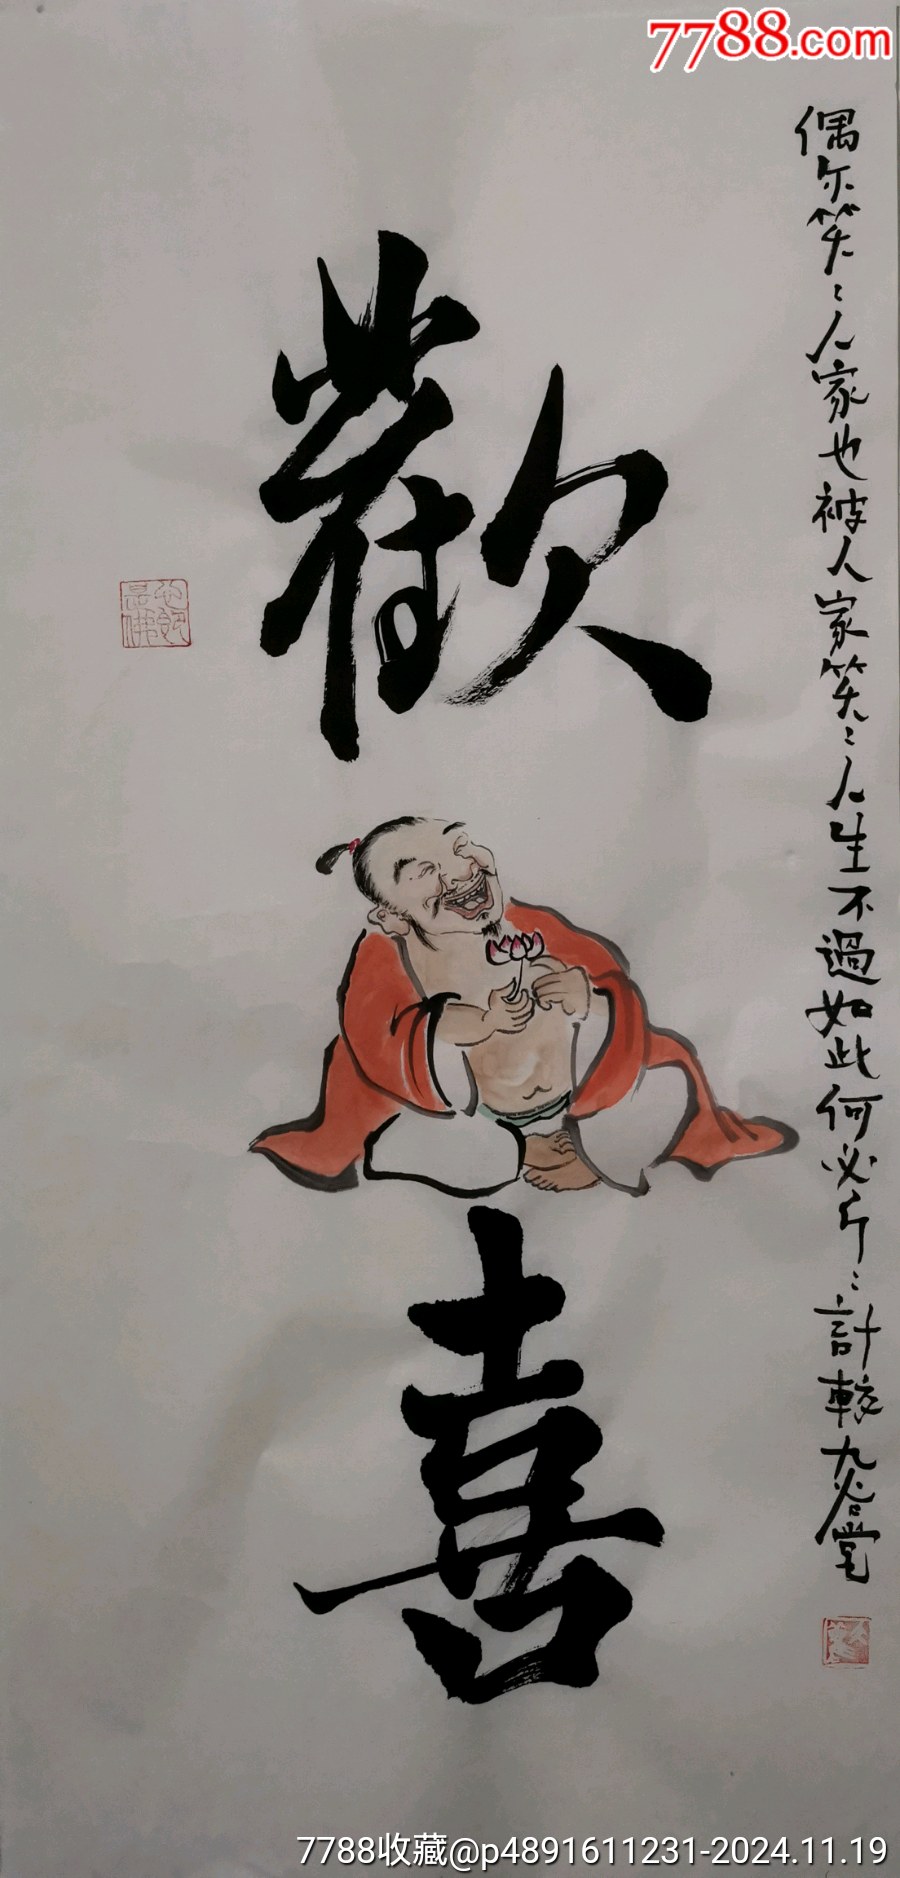 7788.com
偶尔笑〻人家也被人家笑〻人生不過如此何必斤〻計較九容堂
歡
喜
7788收藏@p4891611231-2024.11.19